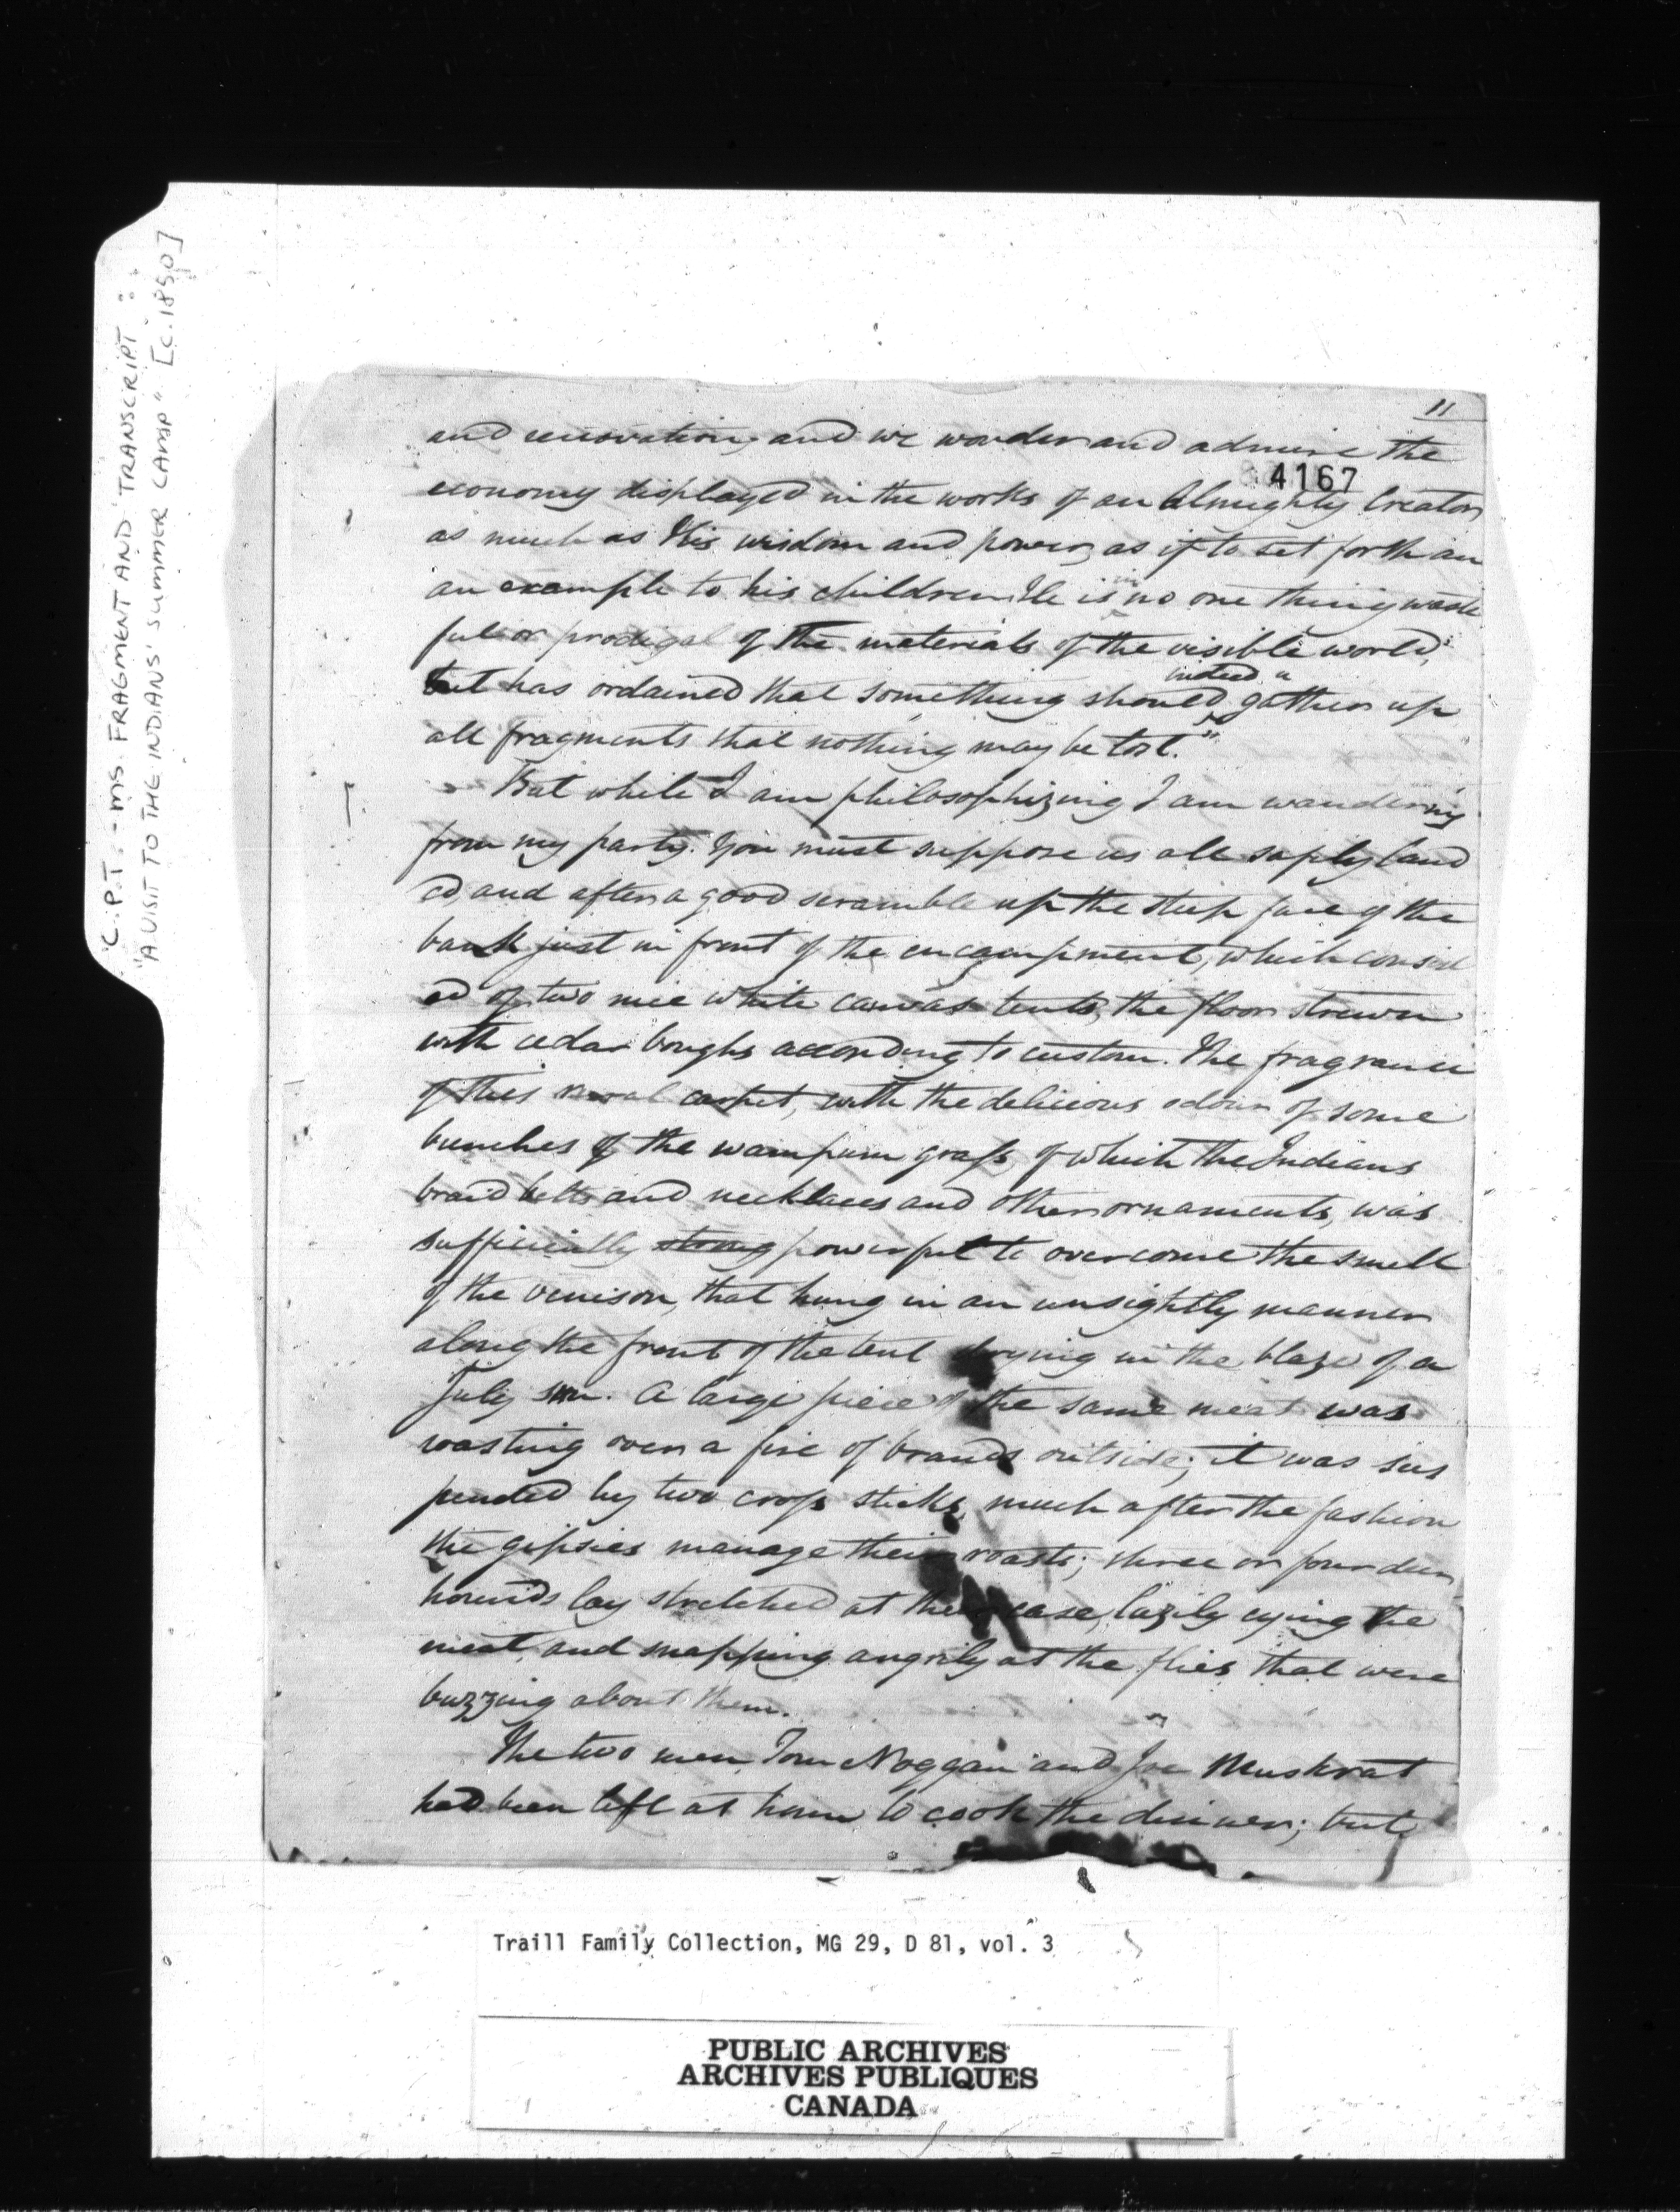 C.P.T. - MS. FRAGMENT AND TRANSCRIPT:
"A VISIT TO THE INDIANS' SUMMER CAMP" [C.1850]
11
4167
and renovation, and we wonder and admire the
economy displayed in the works of an Almighty Creator
as much as His wisdom and power, as if to set forth an
an example to his children. He is in no one thing waste
ful or prodigal of the materials of the visible world,
but has ordained that something should indeed "gather up
all fragments that nothing may be lost."
But while I am philosophizing I am wandering
from my party. You must suppose us all safely land
ed, and after a good scramble up the steep face of the
bank just in front of the encampment, which consist
ed of two nice white canvas tents, the floor strewn
with cedar boughs according to custom. The fragrance
of this rural carpet, with the delicious odour of some
bunches of the wampum grass, of which the Indians
braid belts and necklaces and other ornaments, was
sufficiently strong powerful to overcome the smell
of the venison, that hung in an unsightly manner
along the front of the tent drying in the blaze of a
July sun. A large piece of the same meat was
roasting over a fire of brands outside; it was sus
pended by two cross sticks, much after the fashion
the gipsies manage their roasts; three or four deer
hounds lay stretched at their ease, lazily eying the
meat, and snapping angrily at the flies that were
buzzing about them.
The two men, Tom Noggan and Joe Muskrat
had been left at home to cook the dinner; but
Traill Family Collection, MG 29, D 81, vol. 3
PUBLIC ARCHIVES
ARCHIVES PUBLIQUES
CANADA